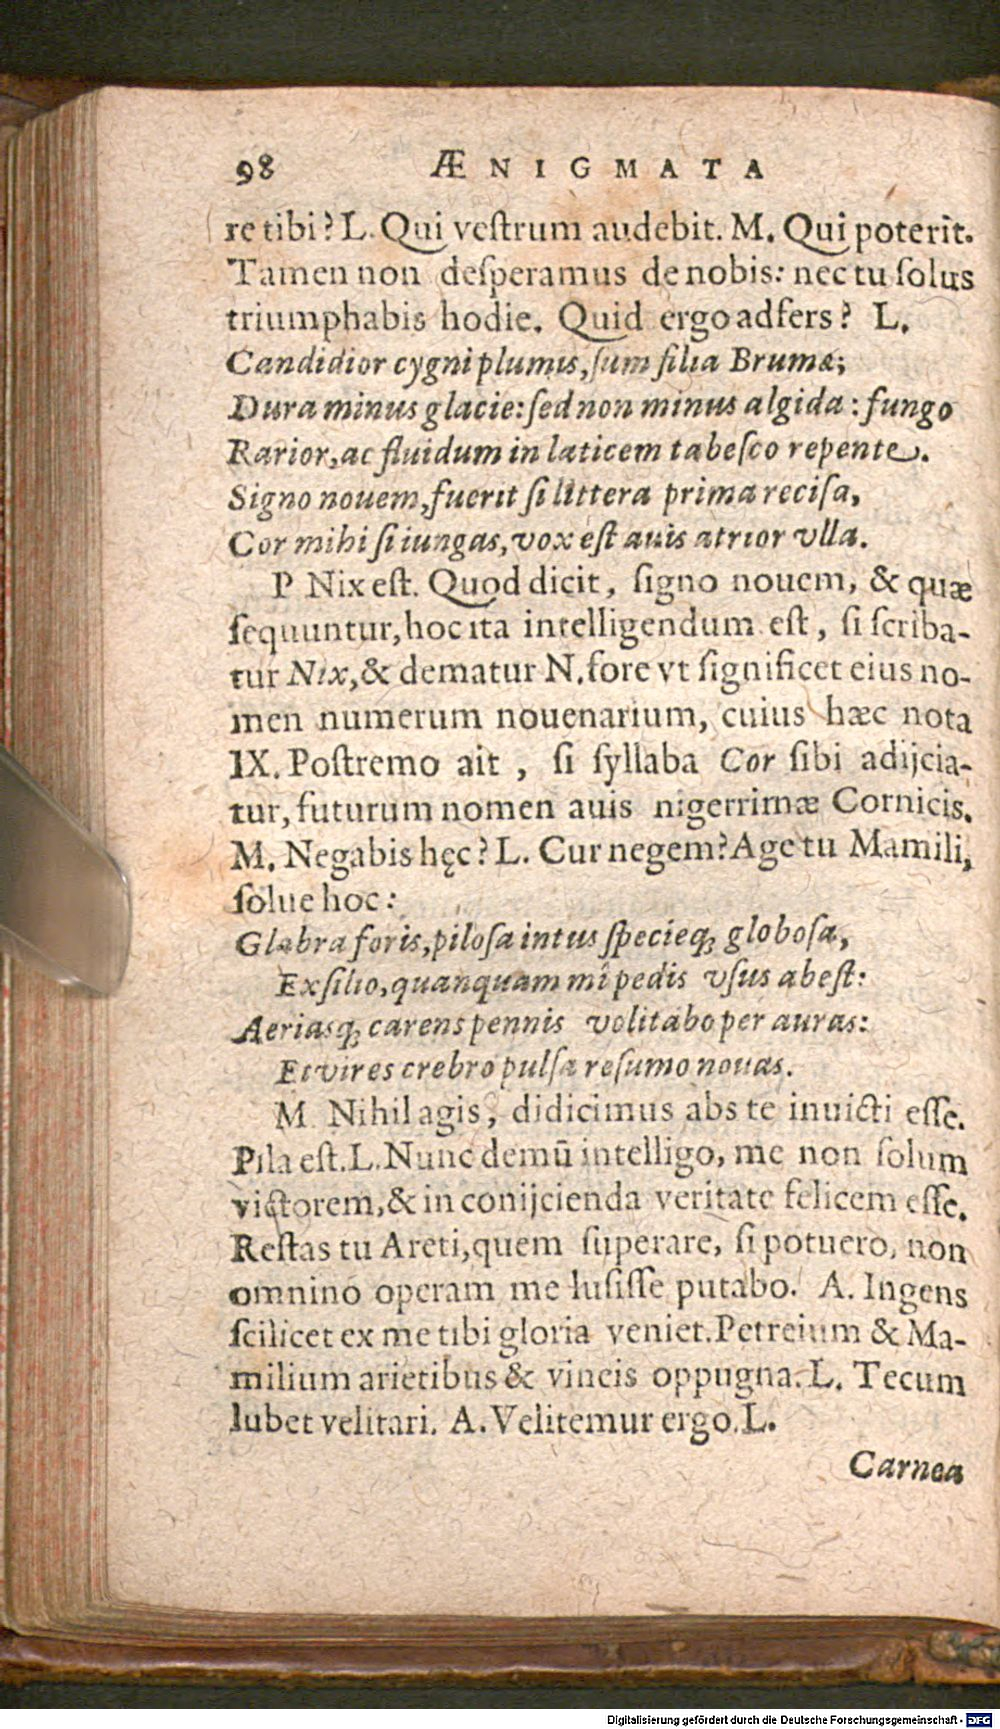 98 ÆNIGMATA
re tibi? L. Qui vestrum audebit. M. Qui poterit.
Tamen non desperamus de nobis: nec tu solus
triumphabis hodie. Quid ergo adfers? L.
Candidior cygni plumis, sum filia Brumæ;
Dura minus glacie: sed non minus algida: fungo
Rarior, ac fluidum in laticem tabesco repente.
Signo nouem, fuerit si littera prima recisa,
Cor mihi si iungas, vox est auis atrior vlla.
P Nix est. Quod dicit, signo nouem, & quæ
sequuntur, hoc ita intelligendum est, si scriba-
tur Nix, & dematur N. fore vt significet eius no-
men numerum nouenarium, cuius hæc nota
IX. Postremo ait, si syllaba Cor sibi adijcia-
tur, futurum nomen auis nigerrimæ Cornicis.
M. Negabis hęc? L. Cur negem? Age tu Mamili,
solue hoc:
Glabra foris, pilosa intus specieq; globosa,
Exsilio, quanquam mî pedis vsus abest:
Aeriasq; carens pennis volitabo per auras:
Et vires crebro pulsa resumo nouas.
M. Nihil agis, didicimus abs te inuicti esse.
Pila est. L. Nunc demū intelligo, me non solum
victorem, & in conijcienda veritate felicem esse.
Restas tu Areti, quem superare, si potuero, non
omnino operam me lusisse putabo. A. Ingens
scilicet ex me tibi gloria veniet. Petreium & Ma-
milium arietibus & vincis oppugna. L. Tecum
lubet velitari. A. Velitemur ergo. L.
Carnea
Digitalisierung gefördert durch die Deutsche Forschungsgemeinschaft - DFG